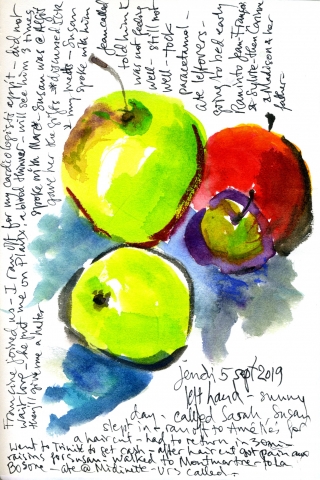 Jeudi 5 sept 2019
left hand - sunny
day - called Sarah, Susan
slept in + ran off to Amélie's for
a haircut - had to return in 30 min -
went to Trinité to get cash - after haircut got pain aux
raisins for Susan - walked to Montmartre - to la
Bosone - ate @ Midinette - Urs called -
Francine joined us - I ran off for my cardiologist's appt - did not
wait long - he put me on Plavix, a blood thinner - will see him 3 times
they'll give me a halter
spoke with Marge - Susan was @
gave her the gifts + discussed
my meds - Susan
spoke with him
Jean called
told him I
was not feeling
well - still not
well - took
paracetamol -
ate leftovers -
going to bed early
Ran into Jean François
+ Marie - then Carine
+ Madison + her
father -